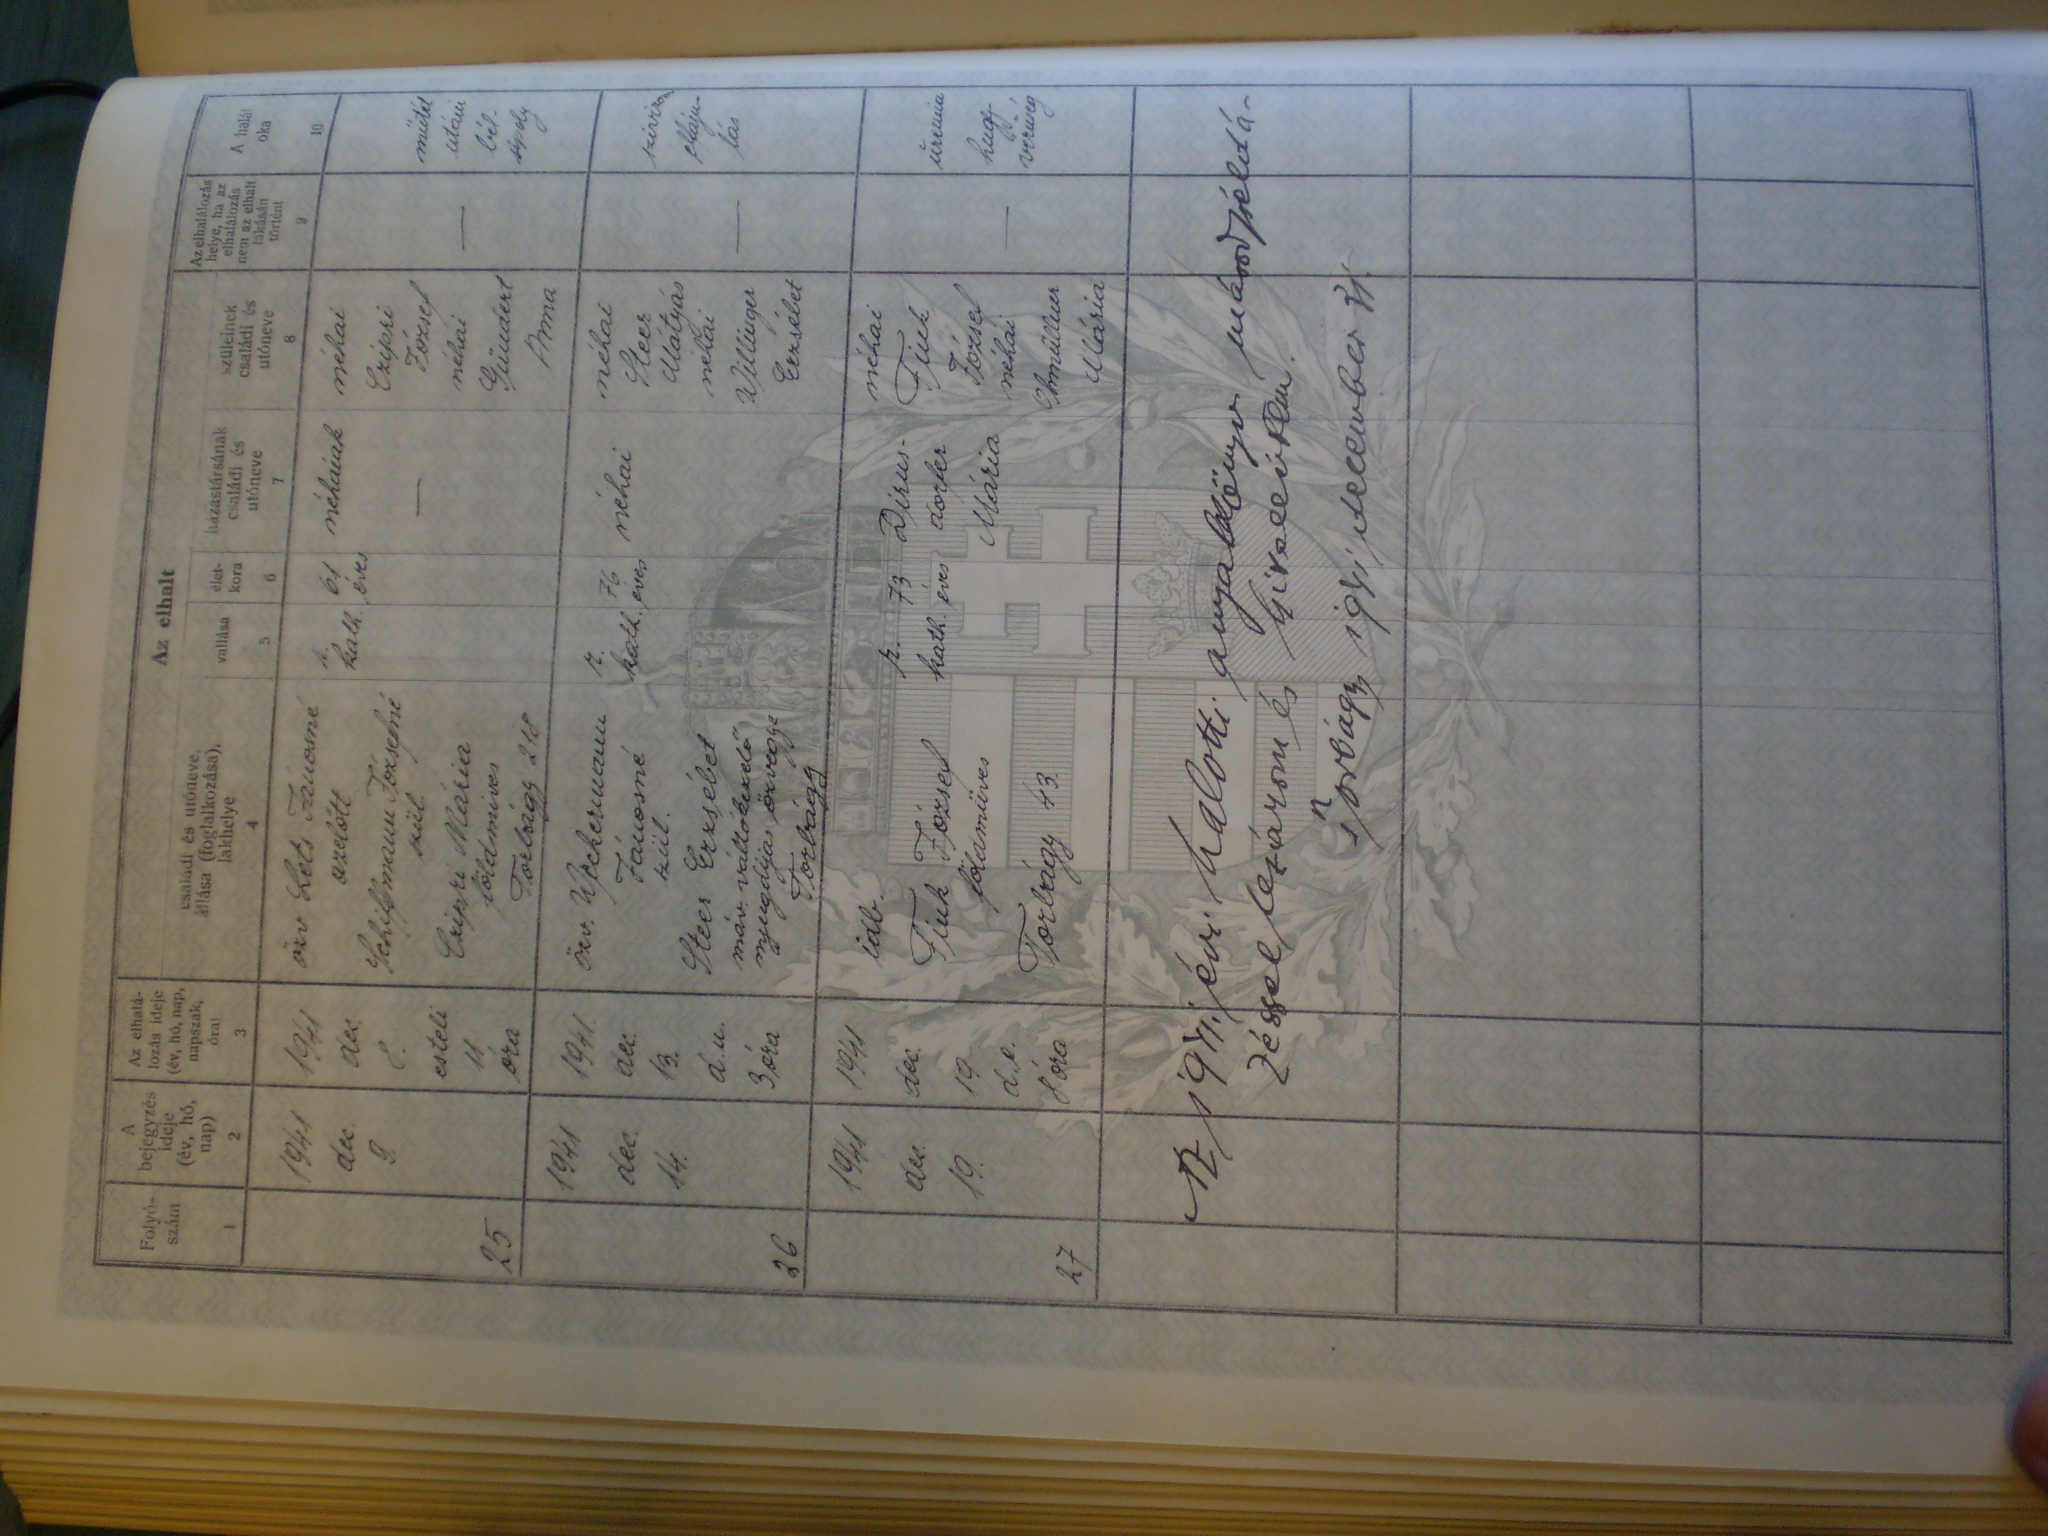 Az elhalt
Folyó-
szám
1
A
bejegyzés
ideje
(év, hó,
nap)
2
Az elhalá-
lozás ideje
(év, hó, nap,
napszak,
óra)
3
családi és utóneve,
állása (foglalkozása),
lakhelye
4
vallása
5
élet-
kora
6
házastársának
családi és
utóneve
7
szüleinek
családi és
utóneve
8
Az elhalálozás
helye, ha az
elhalálozás
nem az elhalt
lakásán
történt
9
A halál
oka
10
25
1941
dec.
9.
1941
dec.
8.
esteli
11
óra
özv Lets Jánosné
azelőtt
Schiffmann Józsefné
szül.
Czipri Mária
földmives
Torbágy 218
r.
kath.
61
éves
néhaiak
—
néhai
Czipri
József
néhai
Gündert
Anna
—
műtét
utáni
bél-
sipoly
26
1941
dec.
14.
1941.
dec.
13.
d.u.
3 óra
özv. Wckermann
Jánosné
szül.
Steer Erzsébet
máv. váltókezelő
nyugdíjas özvegye
Torbágy
r.
kath.
76
éves
néhai
néhai
Steer
Mátyás
néhai
Willinger
Erzsébet
—
szivizo
elfaju-
lás
27
1941
dec.
19.
1941
dec.
19.
d.e.
8 óra
idb.
Fink József
földmüves
Torbágy 43.
r.
kath.
73
éves
Dirns-
dorfer
Mária
néhai
Fink
József
néhai
Ohmüllner
Mária
—
üremia
hugy-
vérüség
Az 1941 évi halotti anyakönyv másodpéldá-
zéssel lezárom és
Torbágy 1941 december 31.